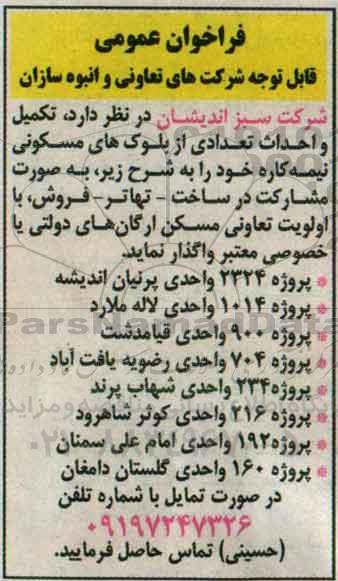 فراخوان عمومی
قابل توجه شرکت های تعاونی و انبوه سازان
شرکت سبز اندیشان در نظر دارد، تکمیل
و احداث تعدادی از بلوک های مسکونی
نیمه‌کاره خود را به شرح زیر، به صورت
مشارکت در ساخت - تهاتر- فروش، با
اولویت تعاونی مسکن ارگان‌های دولتی یا
خصوصی معتبر واگذار نماید.
* پروژه ۲۳۲۴ واحدی پرنیان اندیشه
* پروژه ۱۰۱۴ واحدی لاله ملارد
* پروژه ۹۰۰ واحدی قیامدشت
* پروژه ۷۰۴ واحدی رضویه یافت آباد
* پروژه۲۳۴ واحدی شهاب پرند
* پروژه ۲۱۶ واحدی کوثر شاهرود
* پروژه۱۹۲ واحدی امام علی سمنان
* پروژه ۱۶۰ واحدی گلستان دامغان
در صورت تمایل با شماره تلفن
۰۹۱۹۷۲۴۷۳۲۶
(حسینی) تماس حاصل فرمایید.